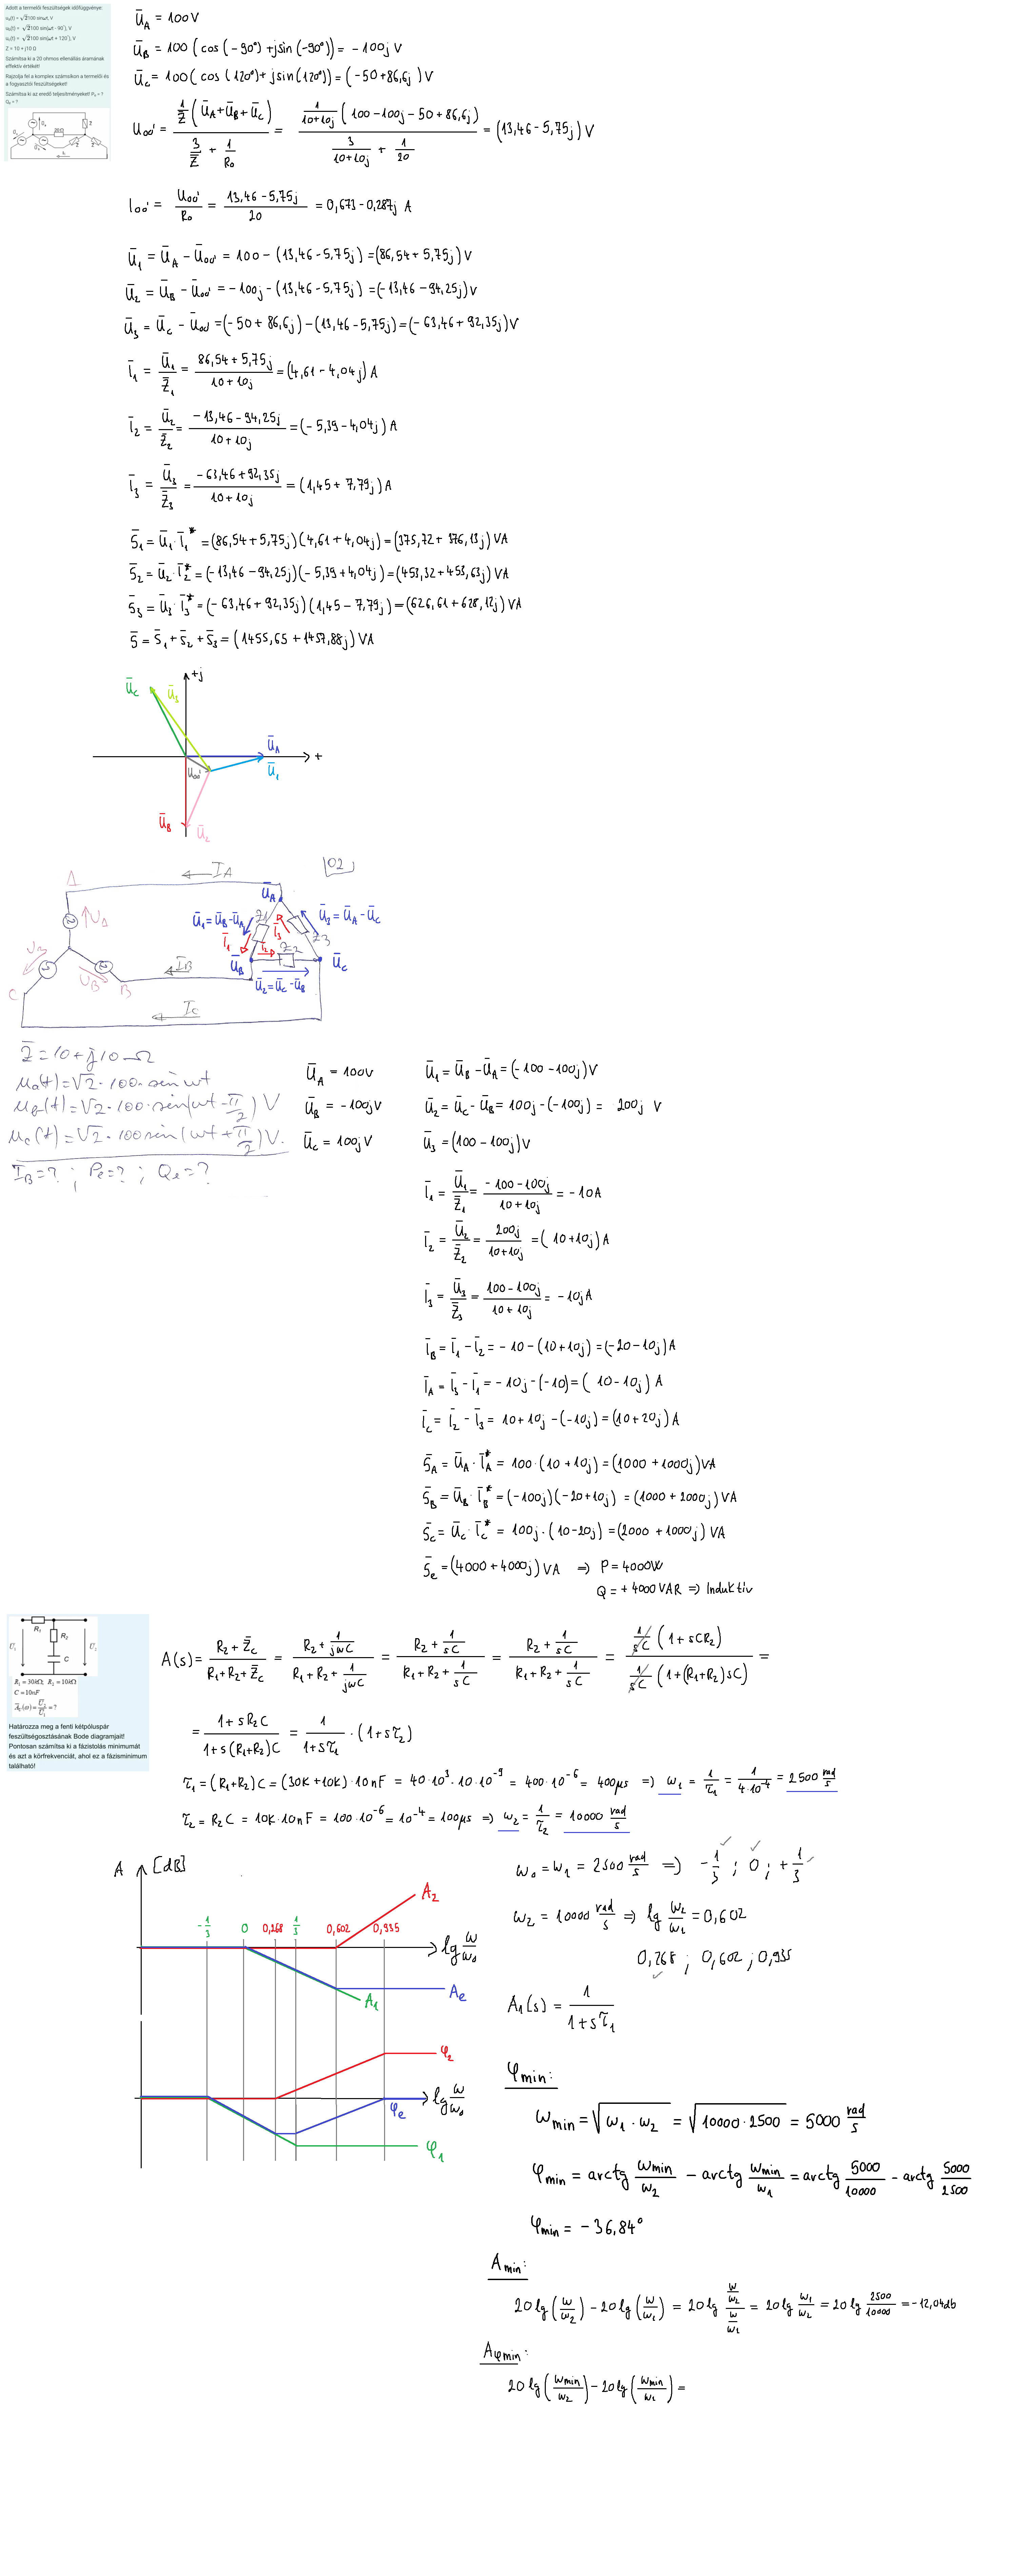 Adott a termelői feszültségek időfüggvénye:
u_a(t) = √2100 sinωt, V
u_b(t) = √2100 sin(ωt - 90°), V
u_c(t) = √2100 sin(ωt + 120°), V
Z = 10 + j10 Ω
Számítsa ki a 20 ohmos ellenállás áramának
effektív értékét!
Rajzolja fel a komplex számsíkon a termelői és
a fogyasztói feszültségeket!
Számítsa ki az eredő teljesítményeket! P_e = ?
Q_e = ?
20 Ω
Ū_A = 100V
Ū_B = 100 (cos(-90°) + jsin(-90°)) = -100j V
Ū_C = 100 (cos(120°) + jsin(120°)) = (-50+86,6j) V
U_00' = (1/Z̄ (Ū_A + Ū_B + Ū_C)) / (3/Z̄ + 1/R_0) = (1/(10+10j) (100-100j-50+86,6j)) / (3/(10+10j) + 1/20) = (13,46-5,75j) V
I_00' = U_00'/R_0 = (13,46-5,75j)/20 = 0,673-0,287j A
Ū_1 = Ū_A - Ū_00' = 100-(13,46-5,75j) = (86,54+5,75j) V
Ū_2 = Ū_B - Ū_00' = -100j-(13,46-5,75j) = (-13,46-94,25j) V
Ū_3 = Ū_C - Ū_00' = (-50+86,6j)-(13,46-5,75j) = (-63,46+92,35j) V
Ī_1 = Ū_1/Z̄_1 = (86,54+5,75j)/(10+10j) = (4,61-4,04j) A
Ī_2 = Ū_2/Z̄_2 = (-13,46-94,25j)/(10+10j) = (-5,39-4,04j) A
Ī_3 = Ū_3/Z̄_3 = (-63,46+92,35j)/(10+10j) = (1,45+7,79j) A
S̄_1 = Ū_1·Ī_1* = (86,54+5,75j)(4,61+4,04j) = (375,72+376,13j) VA
S̄_2 = Ū_2·Ī_2* = (-13,46-94,25j)(-5,39+4,04j) = (453,32+453,63j) VA
S̄_3 = Ū_3·Ī_3* = (-63,46+92,35j)(1,45-7,79j) = (626,61+628,12j) VA
S̄ = S̄_1 + S̄_2 + S̄_3 = (1455,65+1457,88j) VA
+j
Ū_C
Ū_3
Ū_A
+
U_00'
Ū_1
Ū_B
Ū_2
I_A
02
A
Ū_A
U_A
Ū_1 = Ū_B - Ū_A
Z1
Ī_3
Ū_3 = Ū_A - Ū_C
Ī_1
Ī_2
Z2
Z3
U_B
I_B
Ū_B
Ū_C
C
U_B
B
Ū_2 = Ū_C - Ū_B
I_C
Z̄ = 10 + j10 Ω
u_a(t) = √2·100·sin ωt
u_B(t) = √2·100·sin(ωt - π/2) V
u_c(t) = √2·100 sin(ωt + π/2) V.
I_B = ? ; P_e = ? ; Q_e = ?
Ū_A = 100V
Ū_1 = Ū_B - Ū_A = (-100-100j) V
Ū_B = -100j V
Ū_2 = Ū_C - Ū_B = 100j-(-100j) = 200j V
Ū_C = 100j V
Ū_3 = (100-100j) V
Ī_1 = Ū_1/Z̄_1 = (-100-100j)/(10+10j) = -10A
Ī_2 = Ū_2/Z̄_2 = 200j/(10+10j) = (10+10j) A
Ī_3 = Ū_3/Z̄_3 = (100-100j)/(10+10j) = -10j A
Ī_B = Ī_1 - Ī_2 = -10-(10+10j) = (-20-10j) A
Ī_A = Ī_3 - Ī_1 = -10j-(-10) = (10-10j) A
Ī_C = Ī_2 - Ī_3 = 10+10j-(-10j) = (10+20j) A
S̄_A = Ū_A·Ī_A* = 100·(10+10j) = (1000+1000j) VA
S̄_B = Ū_B·Ī_B* = (-100j)(-20+10j) = (1000+2000j) VA
S̄_C = Ū_C·Ī_C* = 100j·(10-20j) = (2000+1000j) VA
S̄_e = (4000+4000j) VA ⇒ P = 4000W
Q = +4000 VAR ⇒ Induktív
R₁
R₂
C
R₁ = 30kΩ; R₂ = 10kΩ
C = 10nF
Ā_U(ω) = Ū_2/Ū_1 = ?
Határozza meg a fenti kétpóluspár
feszültségosztásának Bode diagramjait!
Pontosan számítsa ki a fázistolás minimumát
és azt a körfrekvenciát, ahol ez a fázisminimum
található!
A(s) = (R₂+Z̄_C)/(R₁+R₂+Z̄_C) = (R₂+1/jωC)/(R₁+R₂+1/jωC) = (R₂+1/sC)/(R₁+R₂+1/sC) = (R₂+1/sC)/(R₁+R₂+1/sC) = (1/sC (1+sCR₂))/(1/sC (1+(R₁+R₂)sC)) =
= (1+sR₂C)/(1+s(R₁+R₂)C) = 1/(1+sτ₁) · (1+sτ₂)
τ₁ = (R₁+R₂)C = (30K+10K)·10nF = 40·10³·10·10⁻⁹ = 400·10⁻⁶ = 400μs ⇒ ω₁ = 1/τ₁ = 1/(4·10⁻⁴) = 2500 rad/s
τ₂ = R₂C = 10K·10nF = 100·10⁻⁶ = 10⁻⁴ = 100μs ⇒ ω₂ = 1/τ₂ = 10000 rad/s
A [dB]
ω₀ = ω₁ = 2500 rad/s ⇒ -1/3 ; 0 ; +1/3
A₂
-1/3 0 0,268 1/3 0,602 0,935
lg ω/ω₀
ω₂ = 10000 rad/s ⇒ lg ω₂/ω₁ = 0,602
0,268 ; 0,602 ; 0,935
A₁
A_e
A₁(s) = 1/(1+sτ₁)
φ₂
lg ω/ω₀
φ_e
φ₁
φ_min:
ω_min = √(ω₁·ω₂) = √(10000·2500) = 5000 rad/s
φ_min = arctg ω_min/ω₂ - arctg ω_min/ω₁ = arctg 5000/10000 - arctg 5000/2500
φ_min = -36,84°
A_min:
20 lg(ω/ω₂) - 20 lg(ω/ω₁) = 20 lg (ω/ω₂)/(ω/ω₁) = 20 lg ω₁/ω₂ = 20 lg 2500/10000 = -12,04db
A_φmin:
20 lg(ω_min/ω₂) - 20 lg(ω_min/ω₁) =